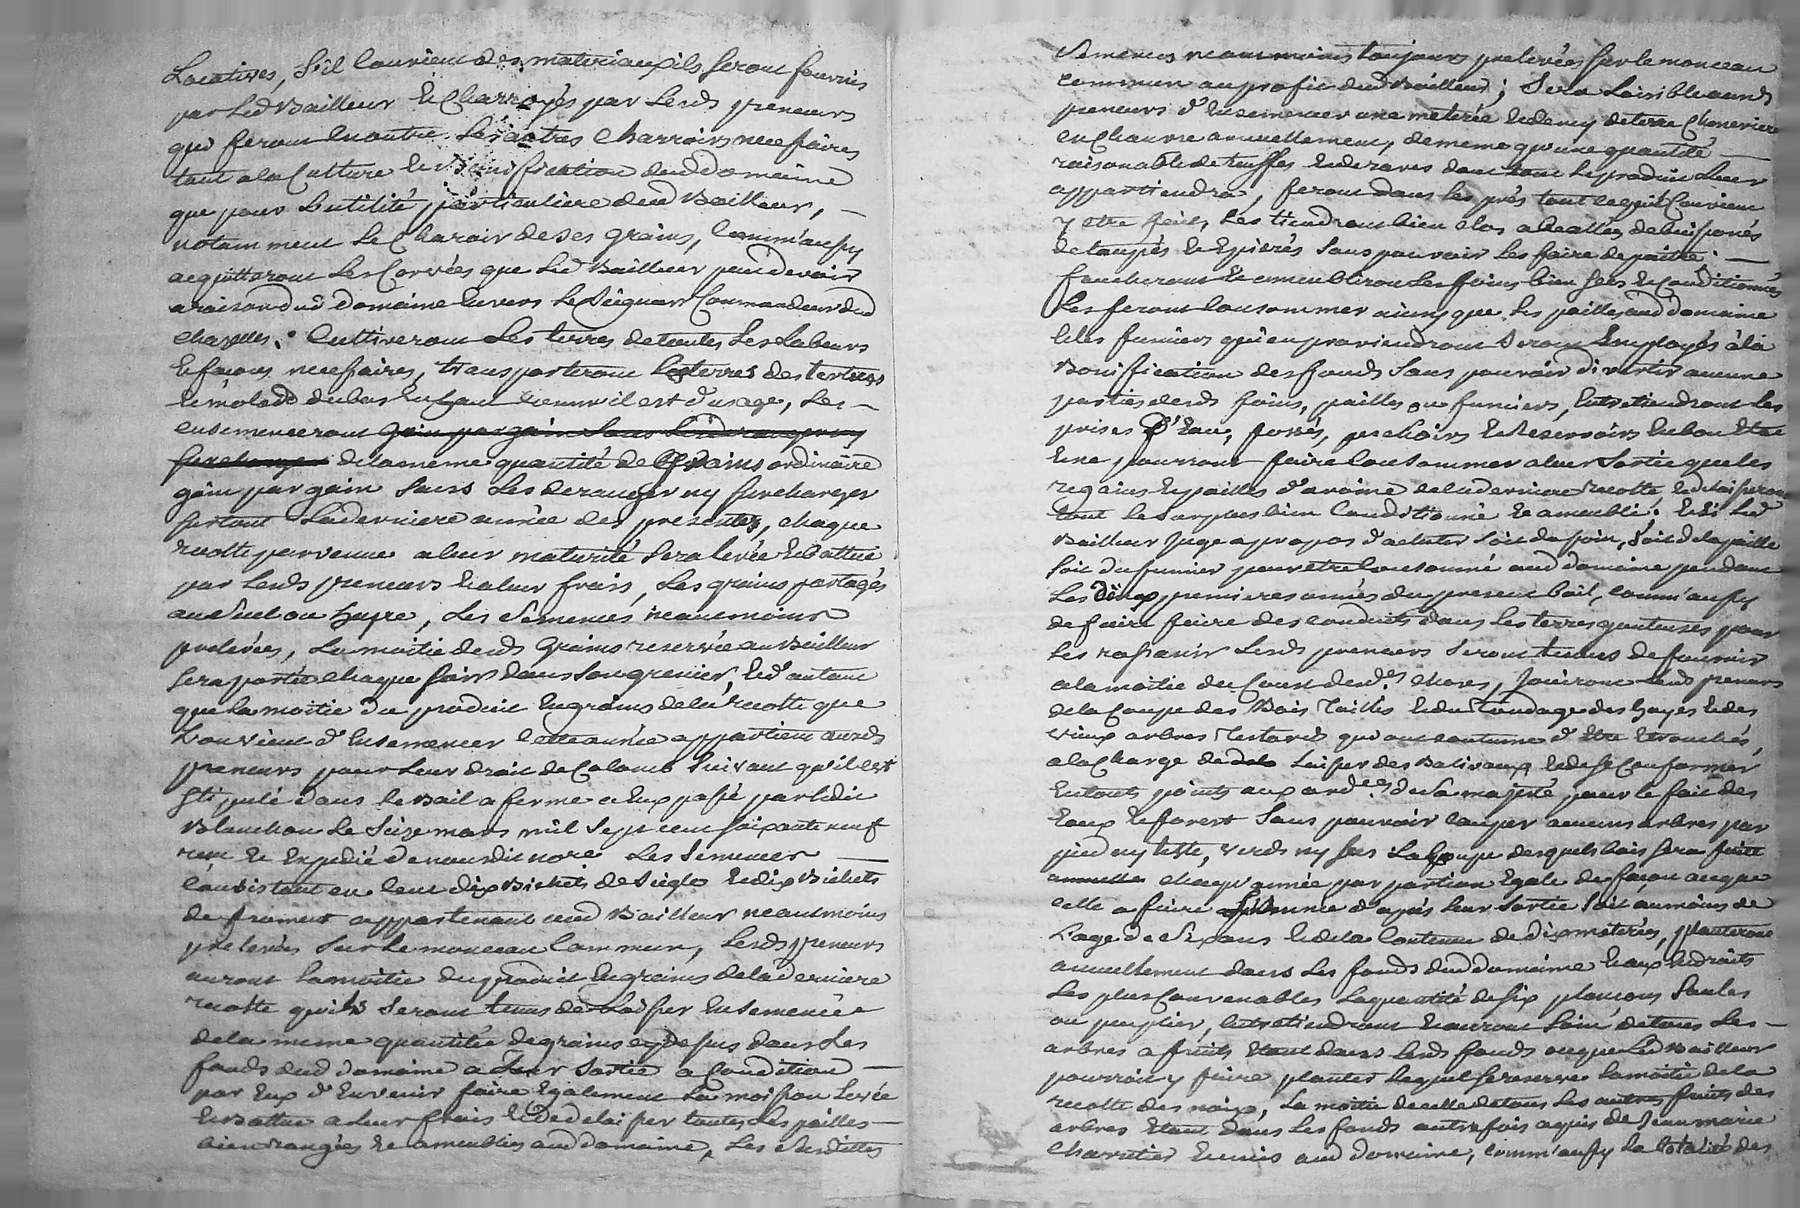 Locatives, s'il convient des materiaux ils seront fournis
par led Bailleur et Charroyés par lesds preneurs
qui feront en outre les autres charrois necessaires
tant a la Culture et Bonification dud domaine
que pour L'utilité particulière dud Bailleur, —
notamment le charroir de ses grains, comm'aussy
acquitteront les Corvées que led Bailleur peut devoir
a raison dud domaine envers le Seigneur Commandeur dud
Chazelles. Cultiveront les terres de toutes les Labeurs
et façons necessaires, transporteront les terres des
du bas en haut comm'il est d'usage, les —
ensemenceront
de la meme quantité de Grains ordinaire
gain par gain sans les deranger ny surcharger
surtout la derniere année des presentes, chaque
recolte parvenue a leur maturité sera levée et battue
par lesds preneurs et a leur frais, les grains partagés
au Suel ou hyere, les semences neaumoins
prelevées, la moitié desds Grains reservée au Bailleur
sera portée chaque fois dans son grenier, et d'autant
que la moitié du produit en grains de la recolte que
l'on vient d'ensemencer cette année appartient auxds
preneurs pour leur droit de Colons suivant qu'il est
stipulé dans le Bail a ferme a eux passé par ledit
Blanchon le Seize mars mil sept cent soixante neuf
reçu et expedié de nousdit nore. Les semences —
consistent en cent dix Bichets de Seigle et dix Bichets
de froment appartenant aud Bailleur neaumoins
prelevées sur le monceau Commun, lesds preneurs
auront la moitié du produit en grains de la derniere
recolte qu'ils seront tenus de laisser ensemencée
de la meme quantitée de grains cy dessus dans les
fonds dud domaine a leur Sortie a Condition —
par eux d'en venir faire egalement la moisson levée
et Battue a leur frais et de delaisser toutes les pailles —
bien rangées et ameublies aud domaine, les susdittes
Semences neaumoins toujours prelevées sur le monceau
commun au profit dud Bailleur; sera loisible auxds
preneurs d'ensemencer une meterée et demy de terre Cheneviere
en Chanvre annuellement, de meme qu'une quantité —
raisonable de truffes et de raves dont tout le produit leur
appartiendra, feront dans les prés tout ce qu'il Convient
y etre fait, les tiendront bien clos
de taupés et epierrés sans pouvoir les faire depaitre. —
faucheront et ameubliront les foins bien secs et Conditionnés
les feront consommer ainsy que les pailles aud domaine
et les fumiers qui en proviendront seront employés à la
Bonification des fonds sans pouvoir divertir aucune
parties desds foins, pailles ou fumiers, entretiendront les
prises d'Eau, fossés, pechoirs et Reservoirs en bon etat
et ne pourront faire consommer a leur sortie que les
regains et pailles d'avoine de la derniere recolte et delaisseront
tout le surplus bien Conditionné et ameubli. Et si led
Bailleur juge a propos d'acheter soit du foin, soit de la paille
soit du fumier pour etre consommé aud domaine pendant
les deux premieres années du present bail, comm'aussy
de faire faire des conduits dans les terres goutteuses pour
les rassainir lesds preneurs seront tenus de fournir
a la moitié du Cout desdes choses, Jouiront lesds preneurs
de la Coupe des Bois Taillis et du Tondage des hayes et des
vieux arbres Testards qui ont coutume d'etre etronchés,
a la Charge de laisser des Balivaux et de se Conformer
en touts points aux ordces de sa majesté pour le fait des
Eaux et forest sans pouvoir couper aucuns arbres par
pied ny teste, verds ny secs. La Coupe desquels bois sera faitte
chaqu'année par portion Egale de façon a ce que
celle a faire l'année d'après leur sortie soit au moins de
l'age de six ans et de la Contenue de dix meterées, planteront
annuellement dans les fonds dud domaine et aux endroits
les plus Convenables la quantité de six plançons saules
ou peuplier, entretiendront et auront soin de tous les —
arbres a fruits etant dans lesds fonds ou que led Bailleur
pourroit y faire planter lequel se reserve la moitié de la
recolte des noix, la moitié de celle de tous les autres fruits des
arbres etant dans les fonds autrefois aquis de Jean marie
Charretier et unis aud domaine, comm'aussy la totalité des